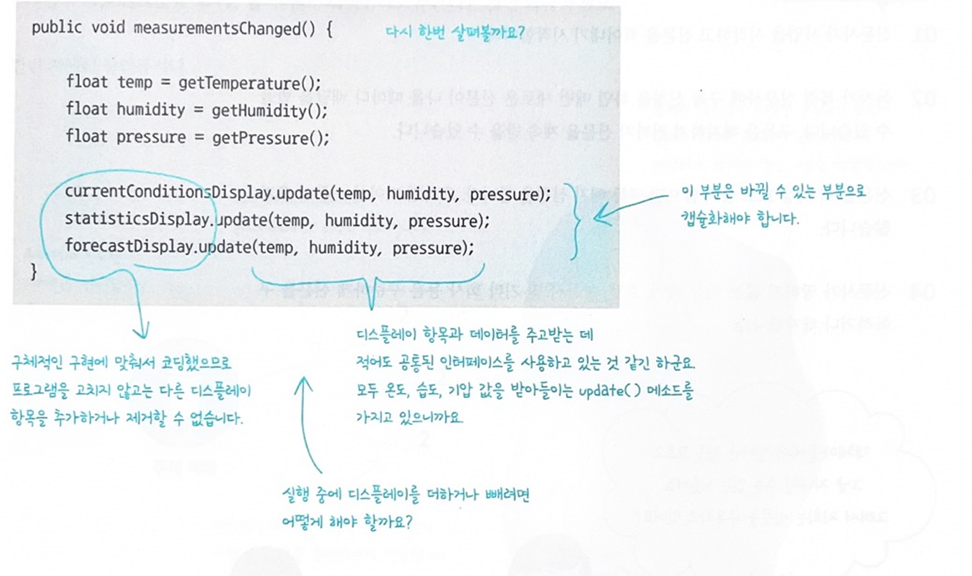 public void measurementsChanged() {
다시 한번 살펴볼까요?
float temp = getTemperature();
float humidity = getHumidity();
float pressure = getPressure();
currentConditionsDisplay.update(temp, humidity, pressure);
statisticsDisplay.update(temp, humidity, pressure);
forecastDisplay.update(temp, humidity, pressure);
}
이 부분은 바뀔 수 있는 부분으로
캡슐화해야 합니다.
구체적인 구현에 맞춰서 코딩했으므로
프로그램을 고치지 않고는 다른 디스플레이
항목을 추가하거나 제거할 수 없습니다.
디스플레이 항목과 데이터를 주고받는 데
적어도 공통된 인터페이스를 사용하고 있는 것 같긴 하군요
모두 온도, 습도, 기압 값을 받아들이는 update() 메소드를
가지고 있으니까요
실행 중에 디스플레이를 더하거나 빼려면
어떻게 해야 할까요?